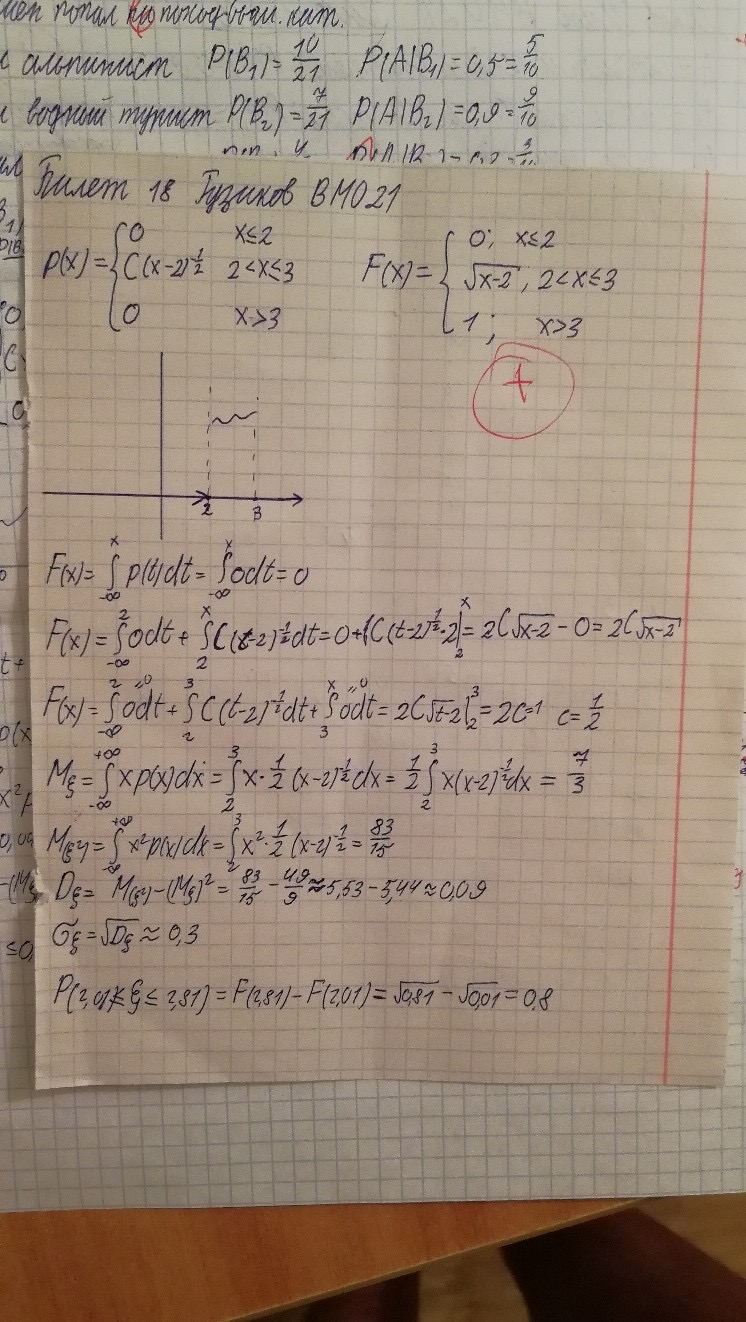 попал по поход выш. кат.
альпинист P(B₁)=10/21 P(A|B₁)=0,5=5/10
водный турист P(B₂)=7/21 P(A|B₂)=0,9=9/10
Билет 18 Гузиков ВМО21
p(x)={0 x≤2
C(x-2)^-1/2 2<x≤3
0 x>3
F(x)={0; x≤2
√x-2, 2<x≤3
1; x>3
+
2 3
F(x)=∫_{-∞}^{x} p(t)dt=∫_{-∞}^{x} 0dt=0
F(x)=∫_{-∞}^{2} 0dt+∫_{2}^{x} C(t-2)^-1/2 dt=0+(C(t-2)^1/2·2|_{2}^{x}=2C√x-2-0=2C√x-2
F(x)=∫_{-∞}^{2} 0dt+∫_{2}^{3} C(t-2)^-1/2 dt+∫_{3}^{x} 0dt=2C√t-2|_{2}^{3}=2C=1 c=1/2
Mξ=∫_{-∞}^{+∞} xp(x)dx=∫_{2}^{3} x·1/2(x-2)^-1/2 dx=1/2∫_{2}^{3} x(x-2)^-1/2 dx=7/3
M(ξ²)=∫_{-∞}^{+∞} x²p(x)dx=∫_{2}^{3} x²·1/2(x-2)^-1/2=83/15
Dξ=M(ξ²)-(Mξ)²=83/15-49/9≈5,53-5,44≈0,09
σξ=√Dξ≈0,3
P(2,01≤ξ≤2,81)=F(2,81)-F(2,01)=√0,81-√0,01=0,8